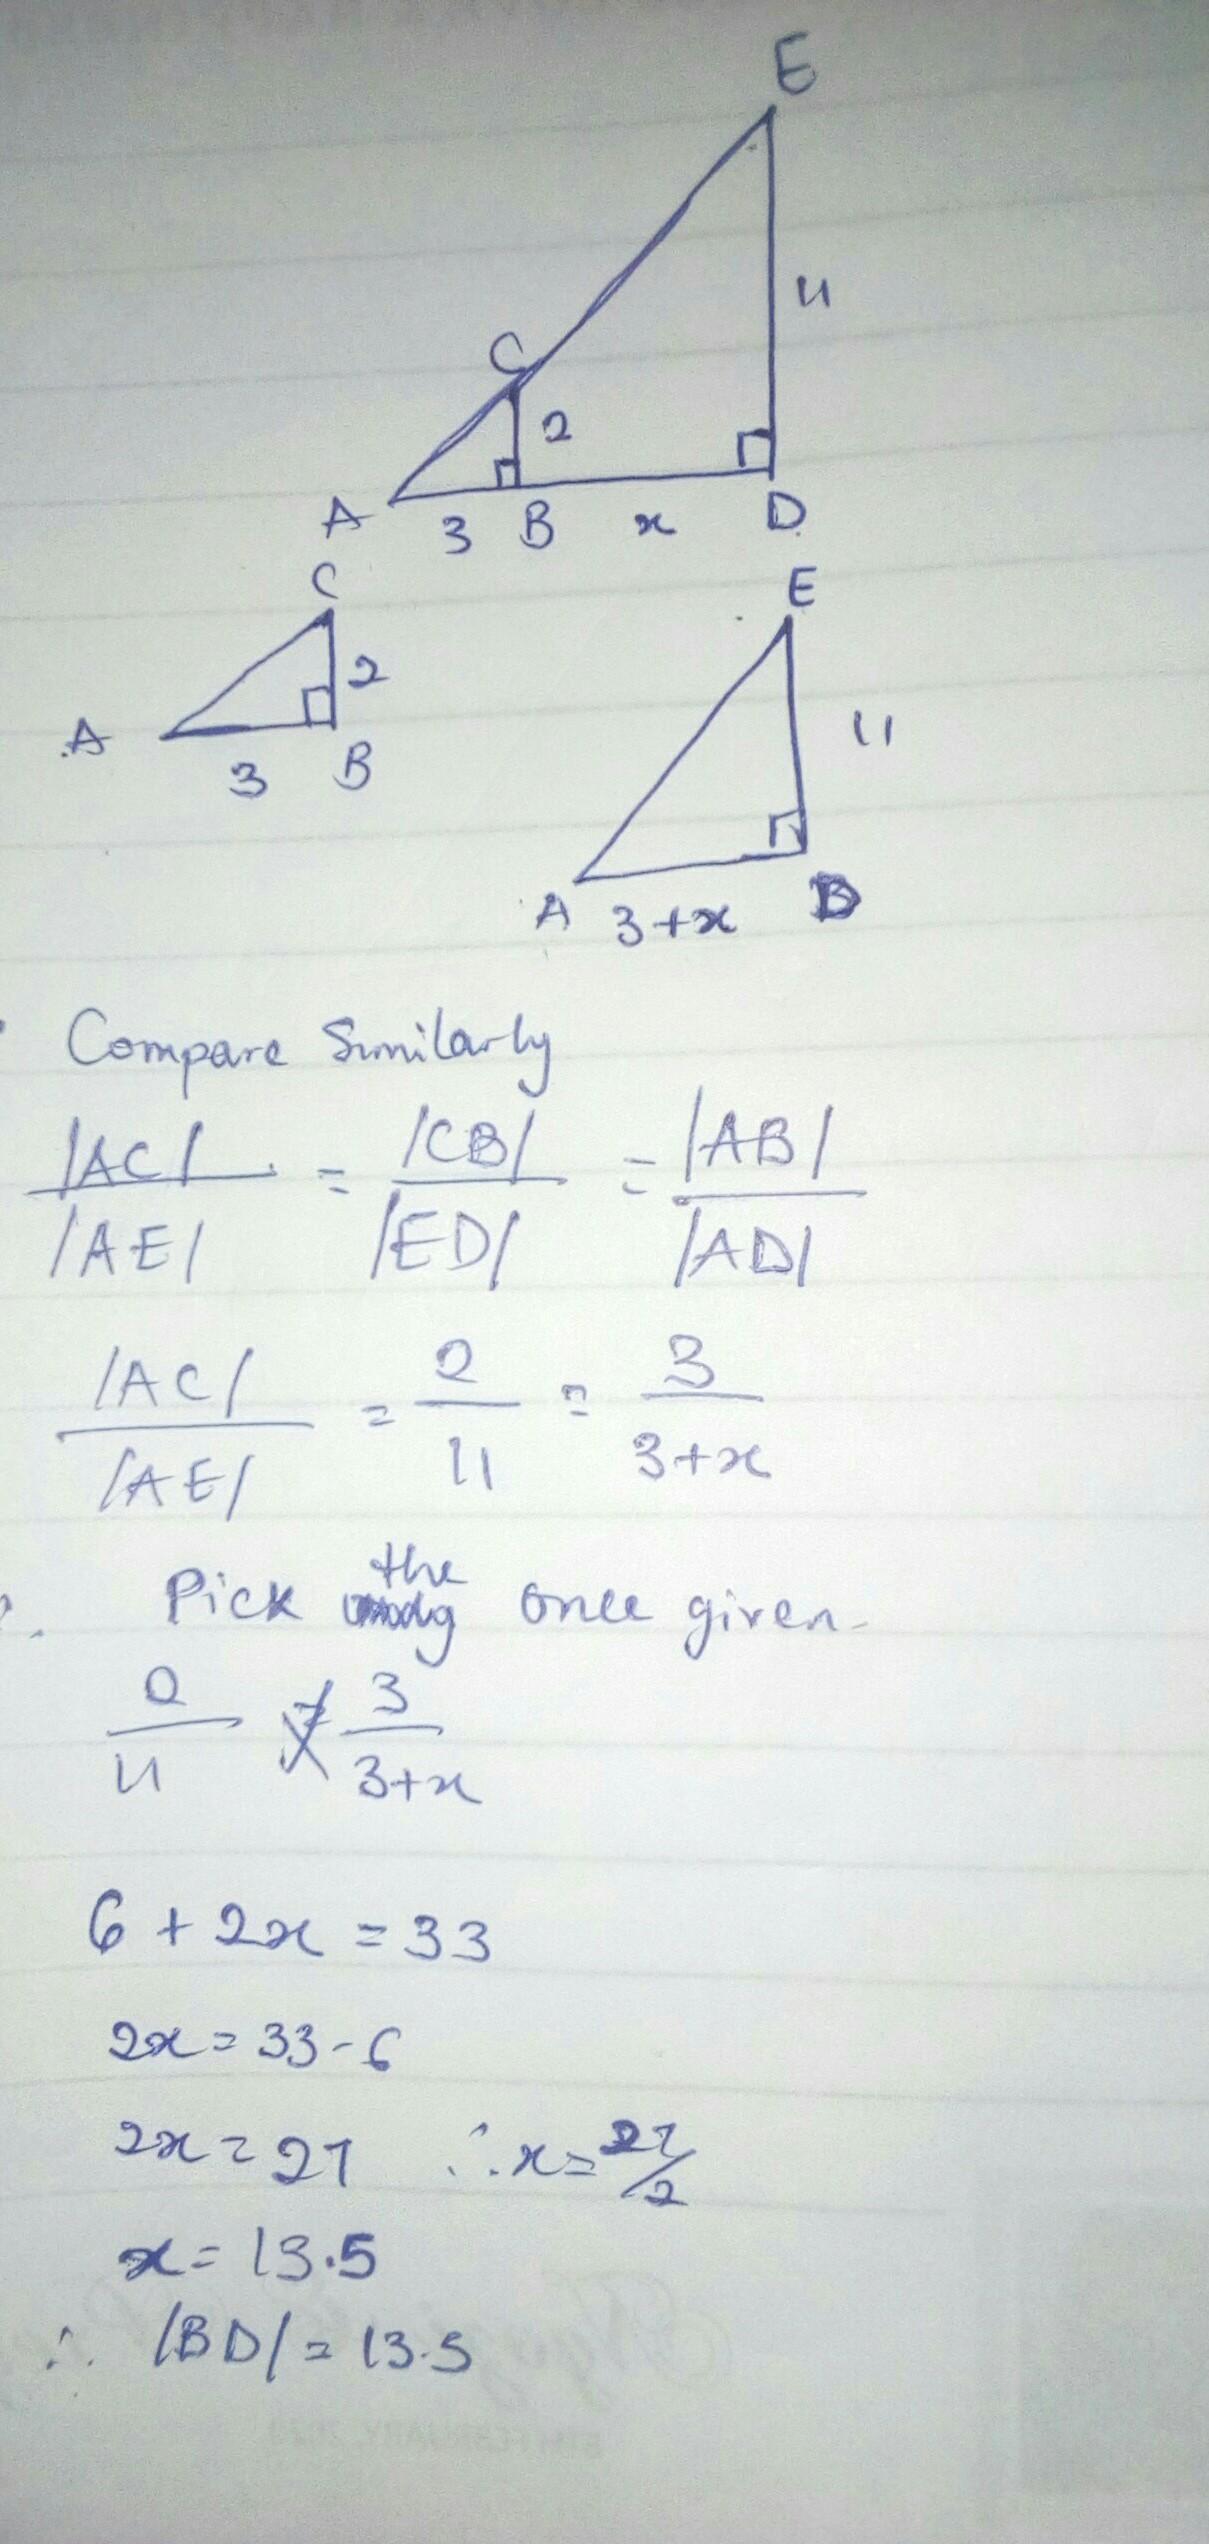 E
11
C
2
A 3 B x D
C
2
A
3 B
E
11
A 3+x D
Compare Similarly
|AC| / |AE| = |CB| / |ED| = |AB| / |AD|
|AC| / |AE| = 2 / 11 = 3 / 3+x
Pick the once given.
2 / 11 = 3 / 3+x
6 + 2x = 33
2x = 33 - 6
2x = 27 ∴ x = 27/2
x = 13.5
∴ |BD| = 13.5